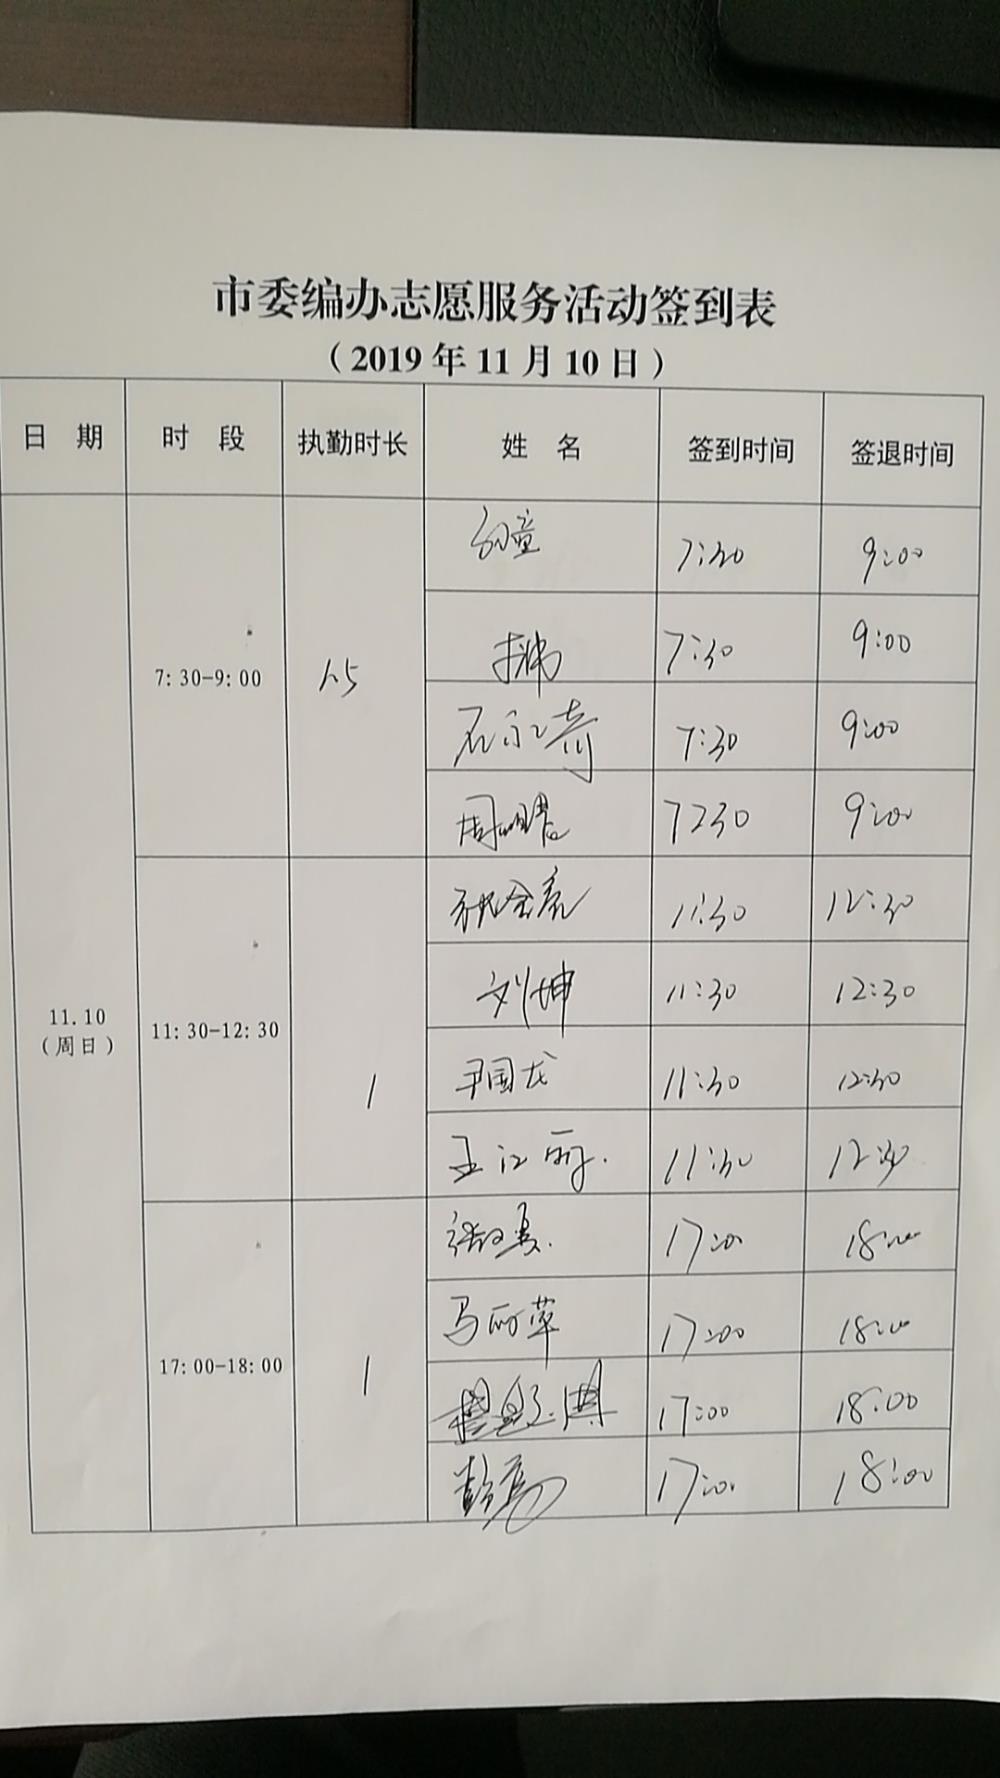 市委编办志愿服务活动签到表
（2019年11月10日）
日 期 时 段 执勤时长 姓 名 签到时间 签退时间
7:30 9:00
7:30-9:00 1.5 7:30 9:00
石永琦 7:30 9:00
周 7:30 9:00
11:30 12:30
11.10
（周日） 11:30-12:30 1 刘坤 11:30 12:30
尹国龙 11:30 12:30
王江丽. 11:30 12:30
17:00 18:00
17:00-18:00 1 马丽苹 17:00 18:00
17:00 18:00
彭 17:00 18:00